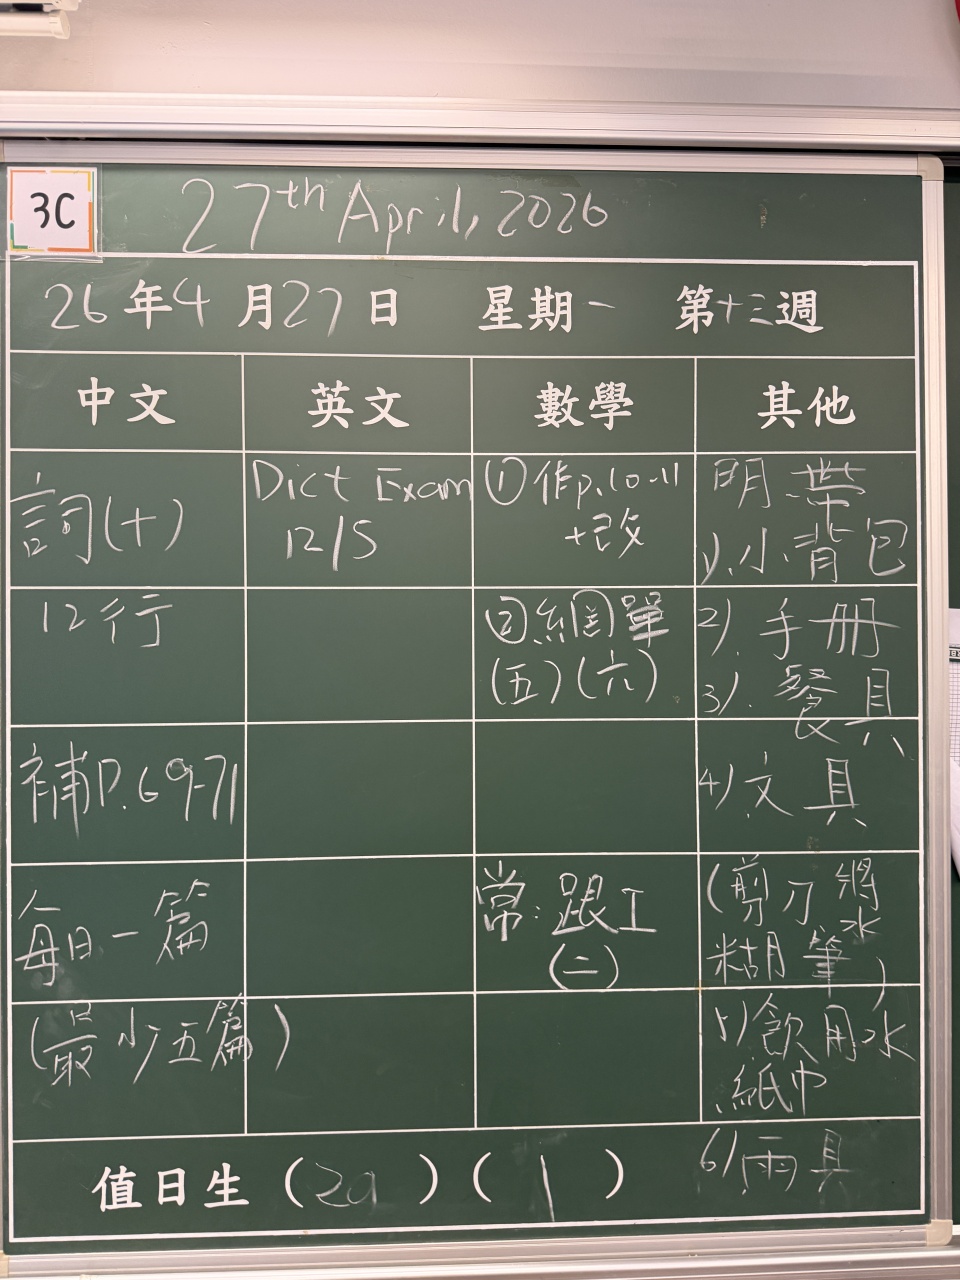 3C
27th April, 2026
26年4月27日 星期一 第十三週
中文 英文 數學 其他
詞(十)
12行
補P.69-71
每日一篇
(最少五篇)
Dict Exam
12/5
①作p.10-11
+改
②網單
(五)(六)
常:跟工
(二)
明帶
1).小背包
2).手册
3).餐具
4)文具
(剪刀將水
糊筆)
5)飲用水
紙巾
6)雨具
值日生(29)(1)